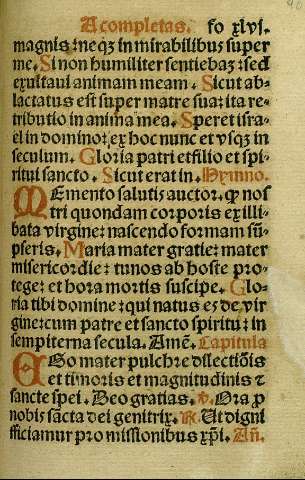 A completas. fo xlvj.
magnis: neqꝫ in mirabilibus super
me. Si non humiliter sentiebaꝫ: sed
exultaui animam meam. Sicut ab-
lactatus est super matre sua: ita re-
tributio in anima mea. Speret isra-
el in domino: ex hoc nunc et vsqꝫ in
seculum. Gloria patri et filio et spi-
ritui sancto. Sicut erat in. Hymno.
MEmento salutis auctor. qꝫ nos
tri quondam corporis ex illi-
bata virgine: nascendo formam sũ-
pseris. Maria mater gratie: mater
misericordie: tu nos ab hoste pro-
tege: et hora mortis suscipe. Glo-
ria tibi domine: qui natus eꝫ de vir
gine: cum patre et sancto spiritu: in
sempiterna secula. Amẽ. Capitula
EGo mater pulchre dilectiõis
et timoris et magnitudinis ⁊
sancte spei. Deo gratias. ℣. Ora ꝓ
nobis sãcta dei genitrix. ℟. Ut digni
efficiamur promissionibus xp̃i. Añ.